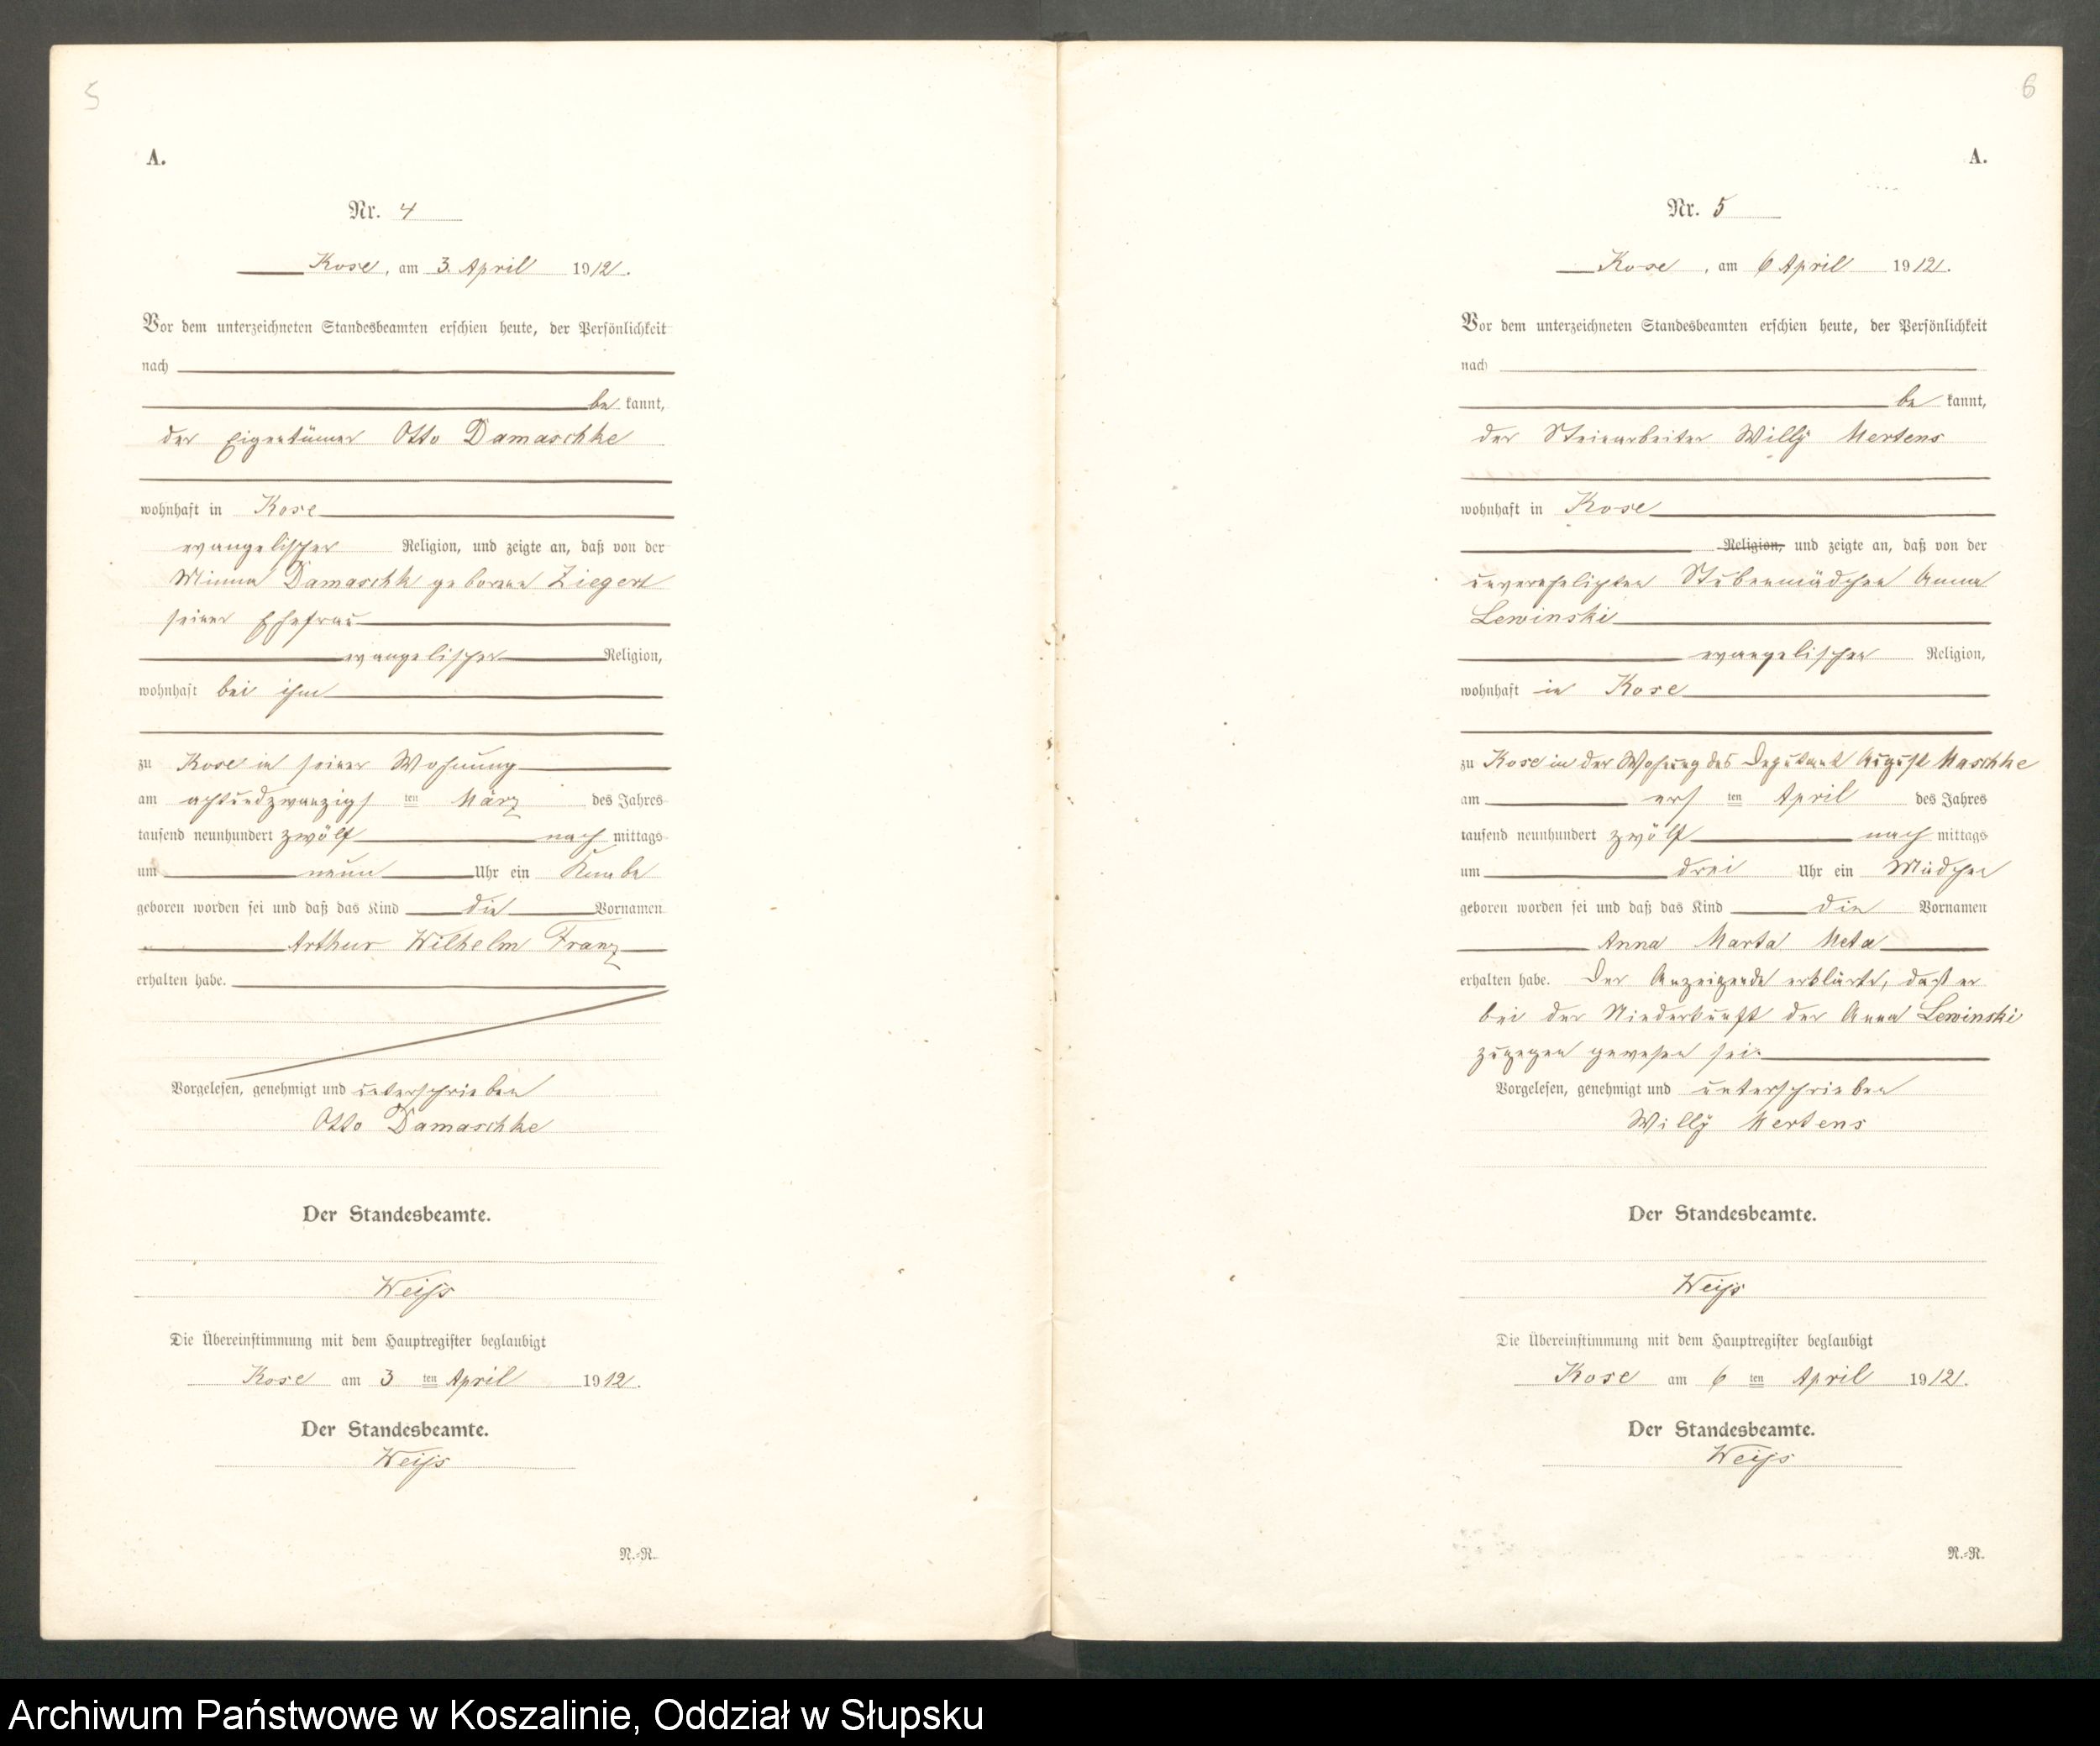 5
A.
Nr. 4
Kose, am 3. April 1912.
Vor dem unterzeichneten Standesbeamten erschien heute, der Persönlichkeit
nach
be kannt,
der Eigentümer Otto Damaschke
wohnhaft in Kose
evangelischer Religion, und zeigte an, daß von der
Minna Damaschk geborene Ziegert
seiner Ehefrau
evangelischer Religion,
wohnhaft bei ihm
zu Kose in seiner Wohnung
am achtundzwanzigsten März des Jahres
tausend neunhundert zwölf nach mittags
um neun Uhr ein Knabe
geboren worden sei und daß das Kind die Vornamen
Arthur Wilhelm Franz
erhalten habe.
Vorgelesen, genehmigt und unterschrieben
Otto Damaschke
Der Standesbeamte.
Weiß
Die Übereinstimmung mit dem Hauptregister beglaubigt
Kose am 3 ten April 1912.
Der Standesbeamte.
Weiß
R.-R.
6
A.
Nr. 5
Kose, am 6 April 1912.
Vor dem unterzeichneten Standesbeamten erschien heute, der Persönlichkeit
nach
be kannt,
der Steinarbeiter Willy Mertens
wohnhaft in Kose
Religion, und zeigte an, daß von der
unverehelichten Stubenmädchen Anna
Lewinski
evangelischen Religion,
wohnhaft in Kose
zu Kose in der Wohnung des Deputant August Maschke
am ersten April des Jahres
tausend neunhundert zwölf nach mittags
um drei Uhr ein Mädchen
geboren worden sei und daß das Kind die Vornamen
Anna Marta Meta
erhalten habe. Der Anzeigende erklärte, daß er
bei der Niederkunft der Anna Lewinski
zugegen gewesen sei.
Vorgelesen, genehmigt und unterschrieben
Willy Mertens
Der Standesbeamte.
Weiß
Die Übereinstimmung mit dem Hauptregister beglaubigt
Kose am 6 ten April 1912.
Der Standesbeamte.
Weiß
R.-R.
Archiwum Państwowe w Koszalinie, Oddział w Słupsku